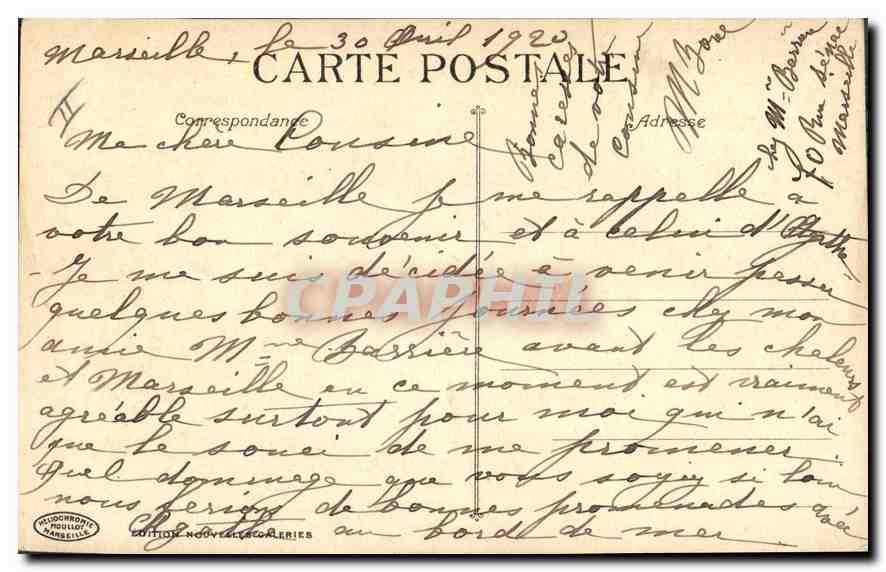 Marseille, le 30 Avril 1920
CARTE POSTALE
Correspondance
Adresse
II
Ma chère Cousine
De Marseille je me rappelle à
votre bon souvenir et à celui d'Agathe
Je me suis décidée à venir passer
quelques bonnes journées chez mon
amie Mme Barrière avant les chaleurs
et Marseille en ce moment est vraiment
agréable surtout pour moi qui n'ai
que le souci de me promener.
Quel dommage que vous soyez si loin
nous ferions de bonnes promenades avec
Agathe au bord de mer
Bonnes
caresses
de votre
cousine
chez Mme Barrière
70 Rue Sénac
Marseille
CPAPHIL
HELIOCHROMIE
MOULLOT
MARSEILLE
EDITION NOUVELLES GALERIES